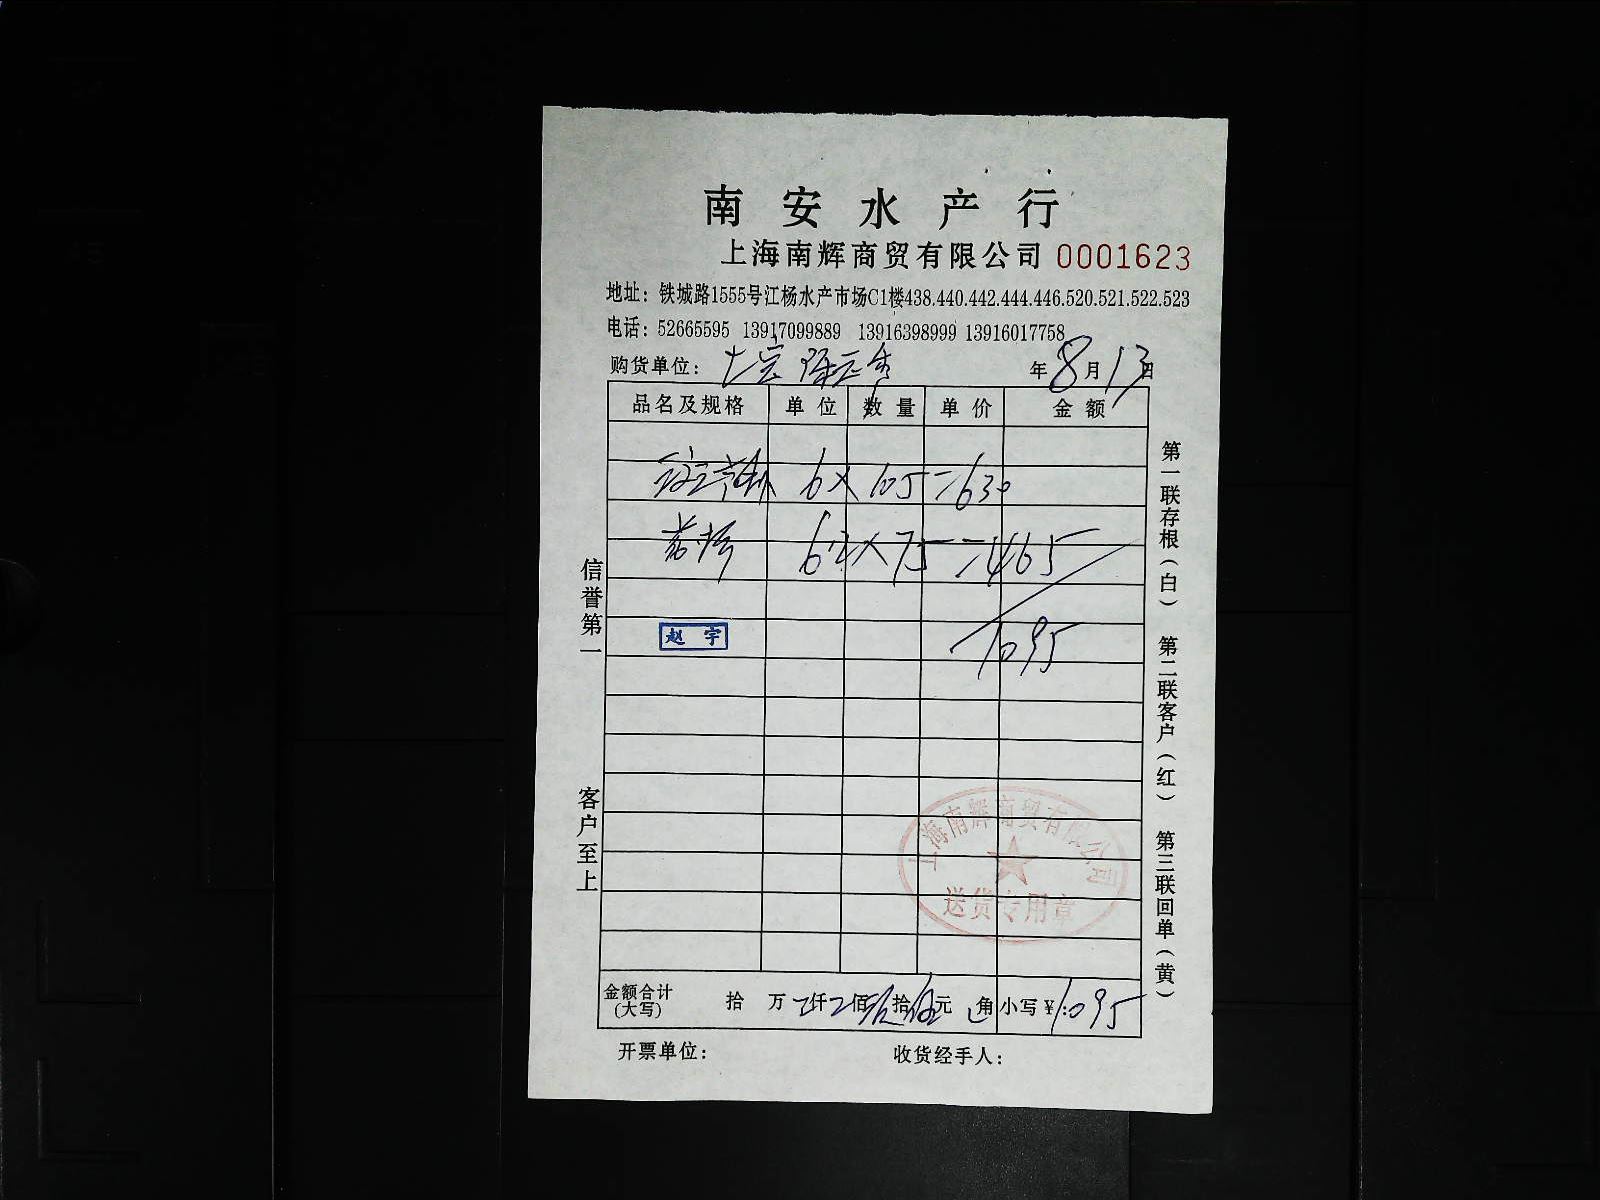 南安水产行
上海南辉商贸有限公司 0001623
地址：铁城路1555号江杨水产市场C1楼438.440.442.444.446.520.521.522.523
电话：52665595 13917099889 13916398999 13916017758
购货单位：
年8月13日
品名及规格 单位 数量 单价 金额
6×105=630
6.2×75=465
赵宇
1095
上海南辉商贸有限公司
送货专用章
金额合计(大写) 拾 万 仟 佰 拾 伍元 角 小写¥：1095
开票单位： 收货经手人：
信誉第一 客户至上
第一联存根（白） 第二联客户（红） 第三联回单（黄）